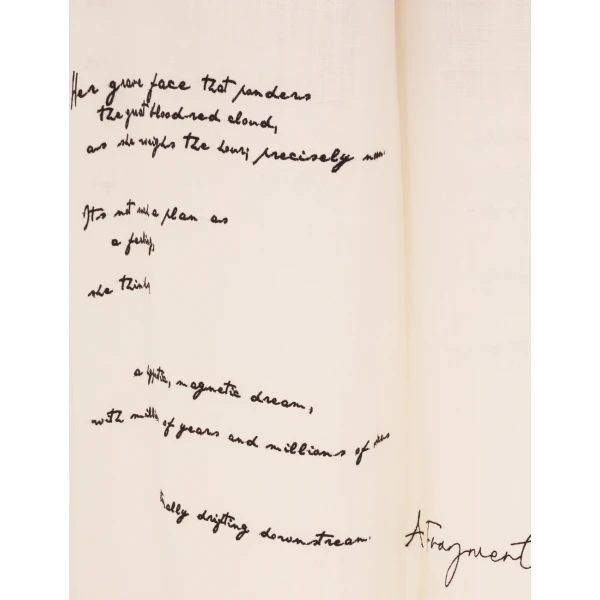 Her grave face that ponders
the great blood-red cloud,
as she weighs the hour, precisely
It's not such a plan as
a feeling,
she thinks
a magnetic dream,
with millions of years and millions of
finally drifting downstream.
A Fragment